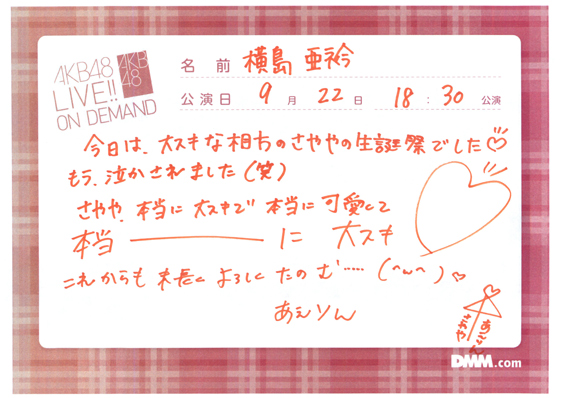 AKB48
LIVE!!
ON DEMAND
AKB
48
名 前 横島 亜衿
公演日 9 月 22 日 18 : 30 公演
今日は、大スキな相方のさややの生誕祭でした♡
もう、泣かされました(笑)
さやや、本当に大スキで 本当に可愛くて
本当 ――― に 大スキ
これからも 末長く よろしく たのむ…… (^ω^)♡
あぇりん
さやや あぇりん
DMM.com